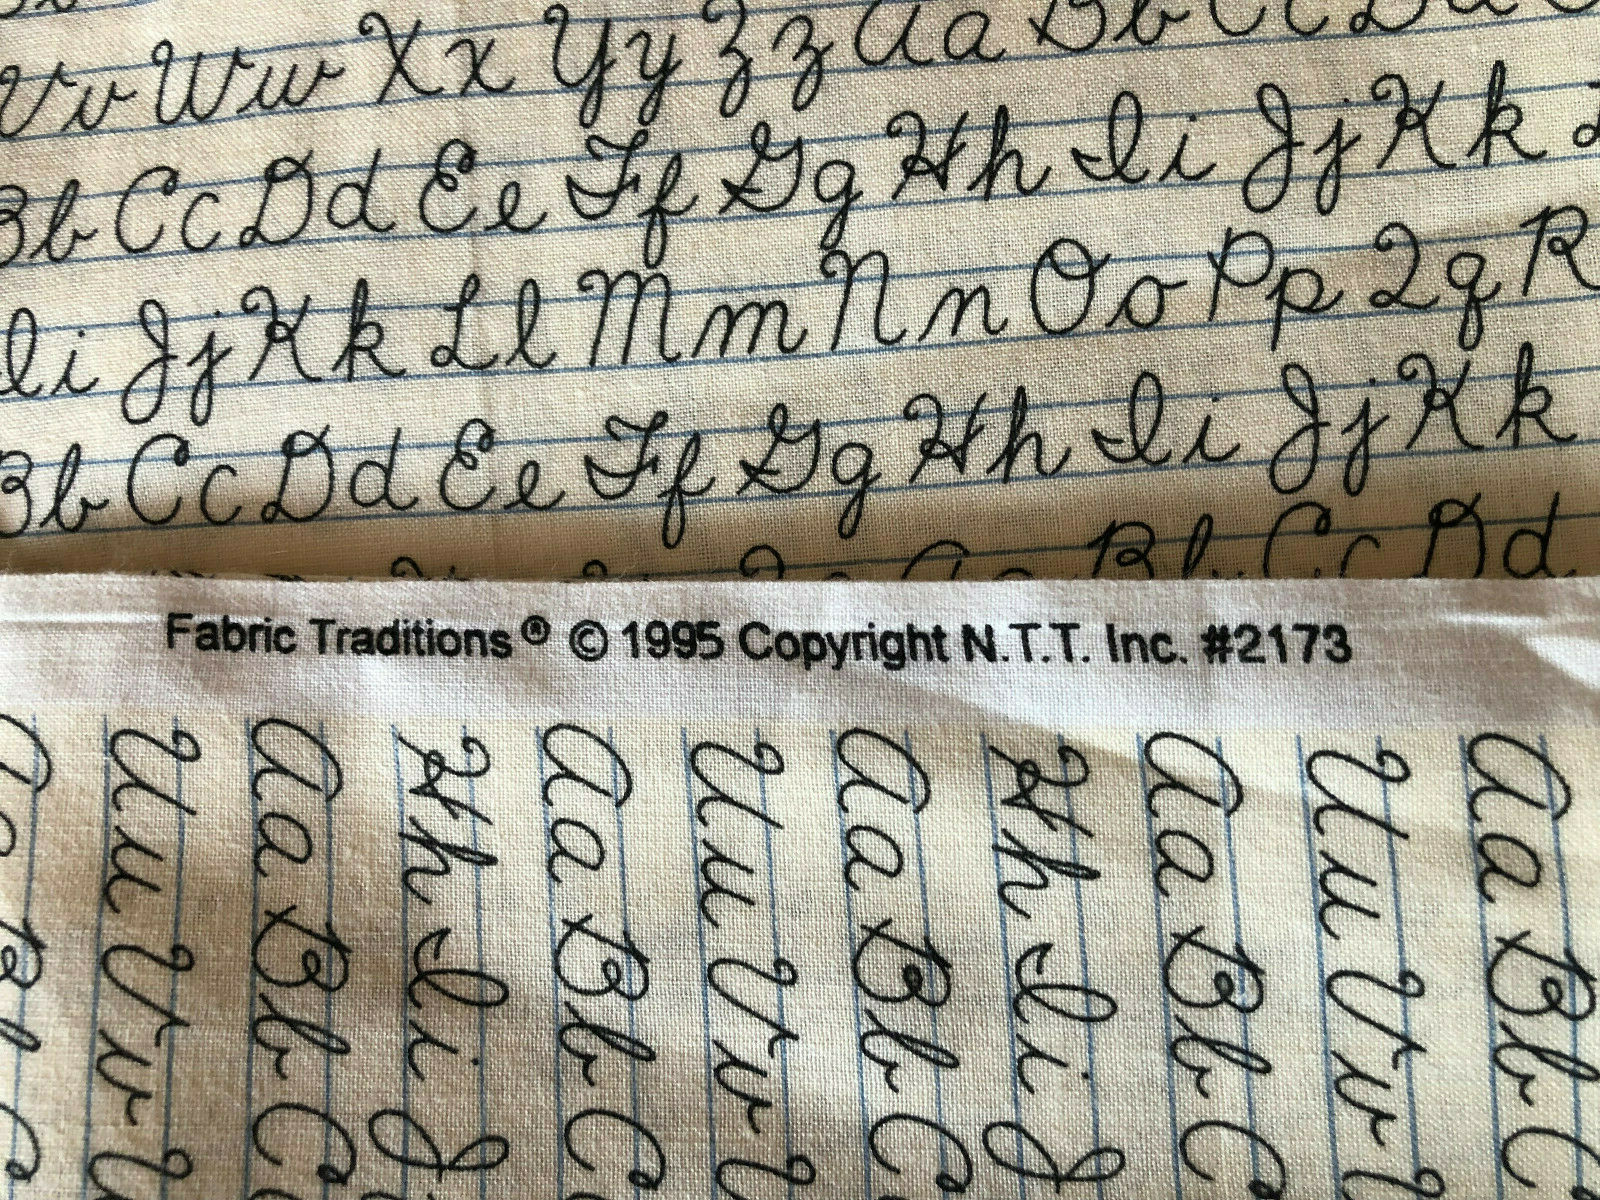 Vv Ww Xx Yy Zz Aa Bb Cc Dd
Bb Cc Dd Ee Ff Gg Hh Ii Jj Kk
Ii Jj Kk Ll Mm Nn Oo Pp Qq R
Bb Cc Dd Ee Ff Gg Hh Ii Jj Kk
Bb Cc Dd
Fabric Traditions® © 1995 Copyright N.T.T. Inc. #2173
Aa Bb C
Uu Vv
Aa Bb C
Hh Ii J
Aa Bb C
Uu Vv
Aa Bb C
Hh Ii J
Aa Bb C
Uu Vv
Aa Bb C